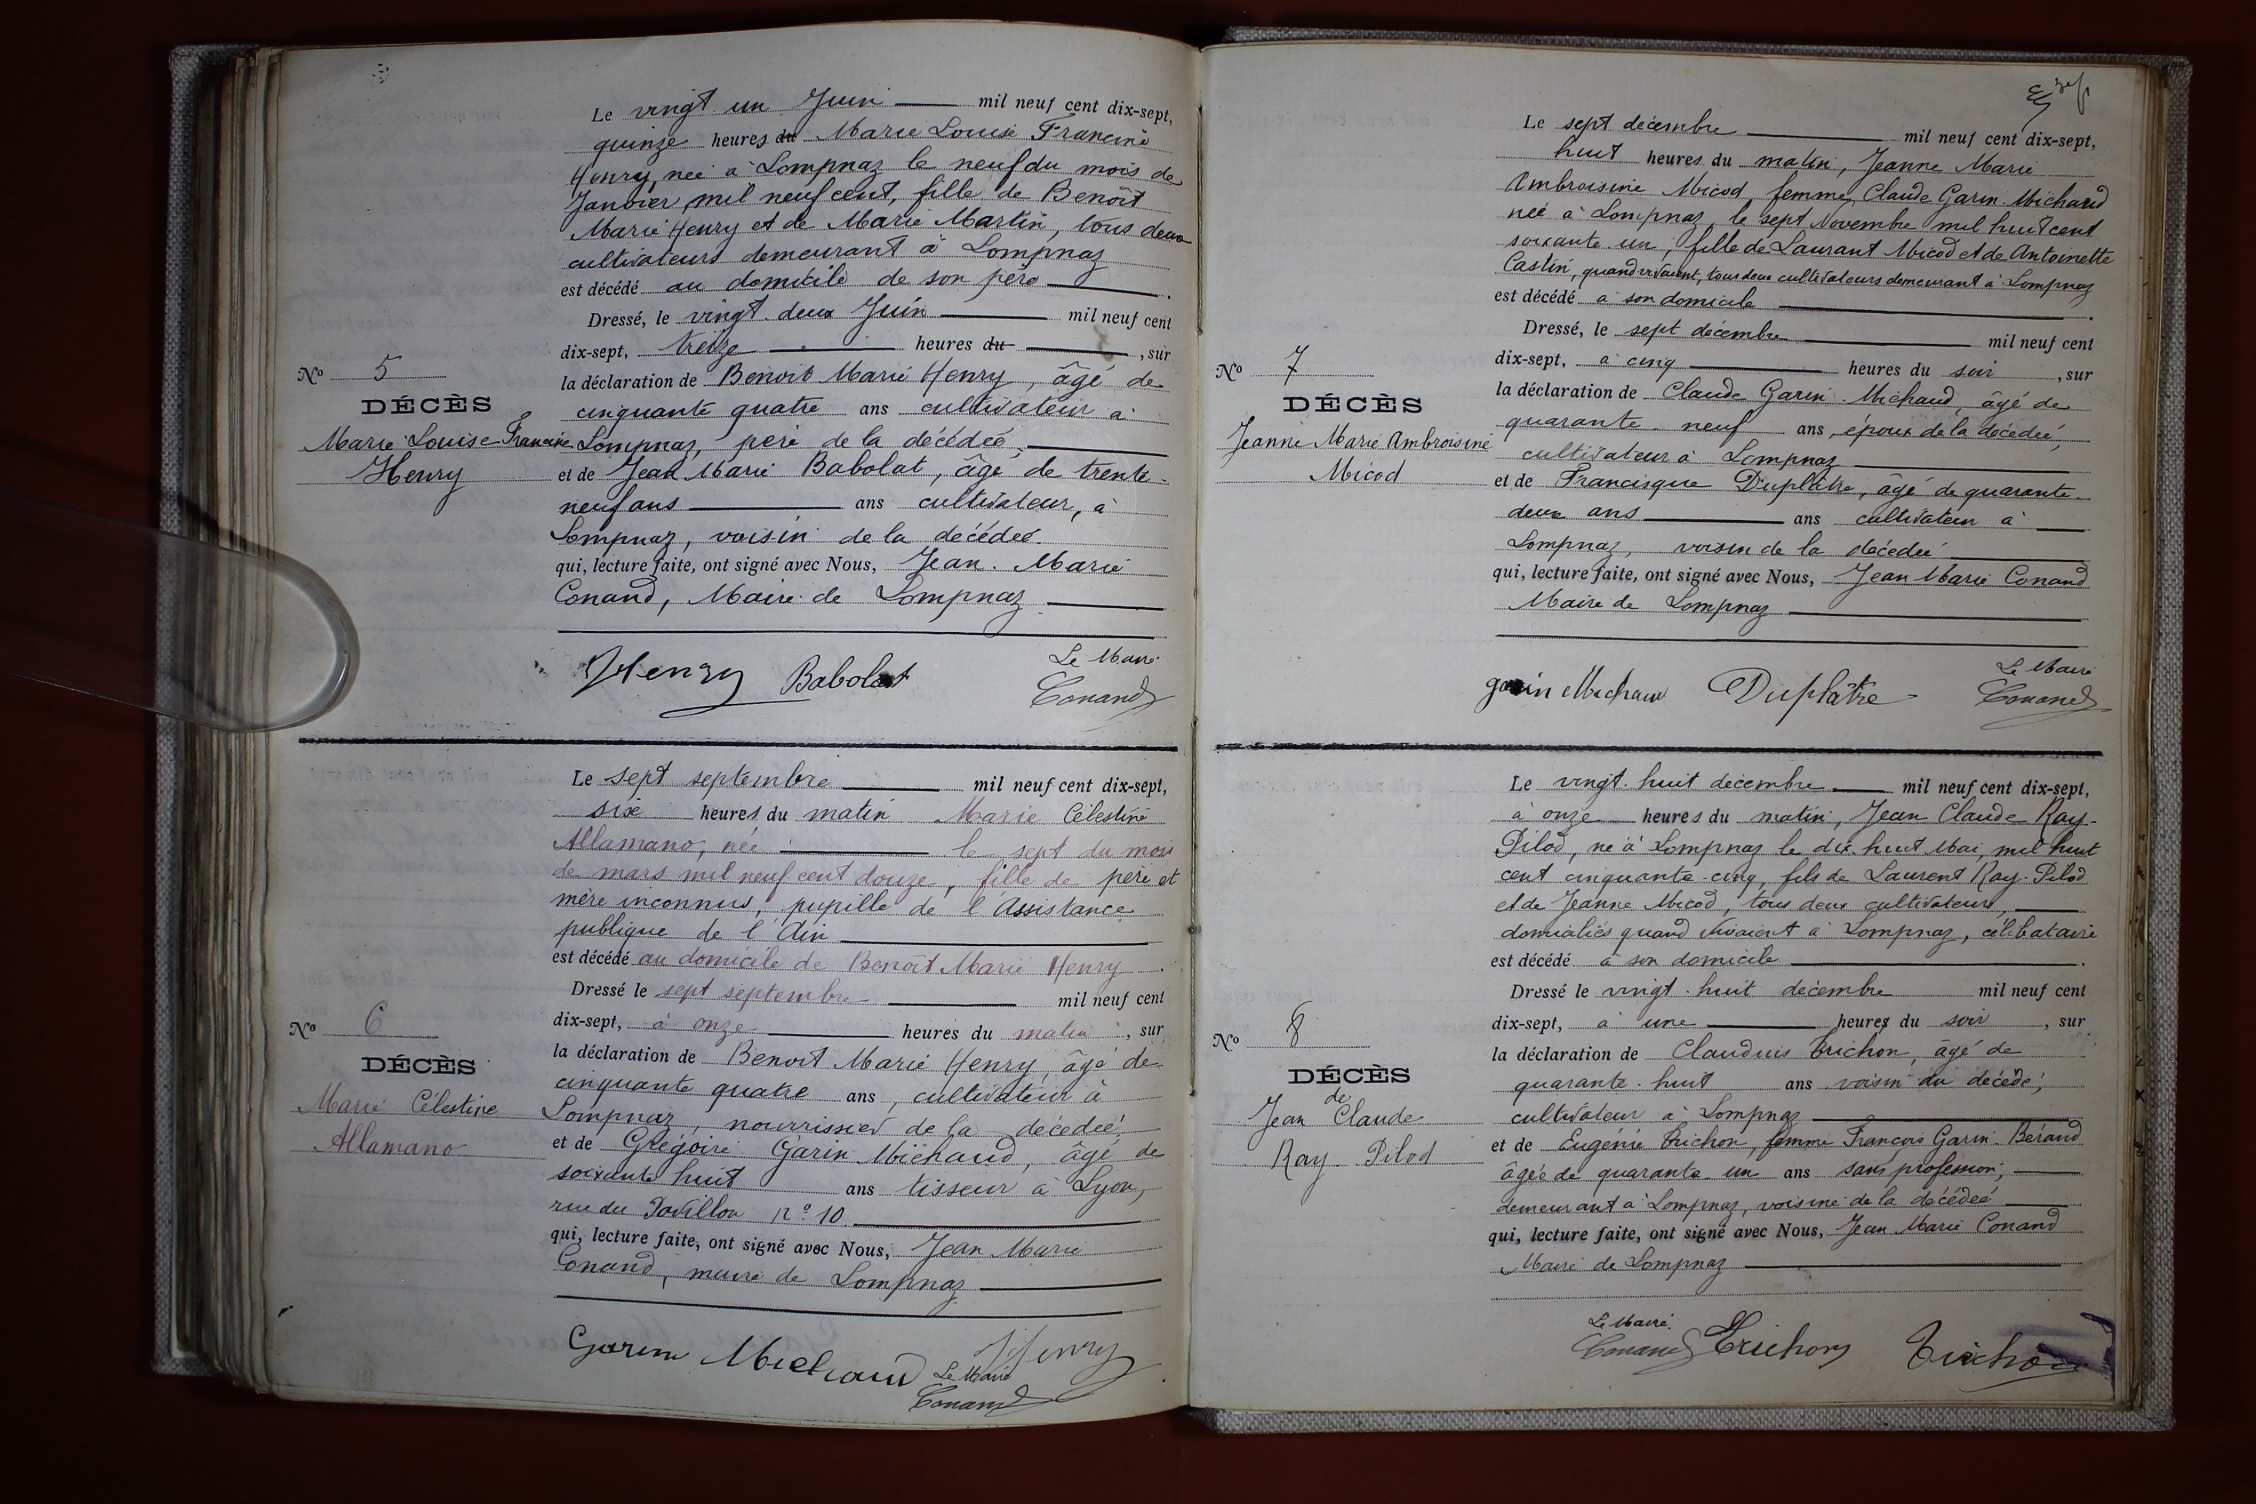 Le vingt un Juin mil neuf cent dix-sept,
quinze heures du Marie Louise Francine
Henry, née à Lompnaz le neuf du mois de
Janvier, mil neuf cent, fille de Benoît
Marie Henry et de Marie Martin, tous deux
cultivateurs demeurant à Lompnaz
est décédé au domicile de son père.
Dressé, le vingt-deux Juin mil neuf cent
dix-sept, treize heures du, sur
la déclaration de Benoit Marie Henry, âgé de
cinquante quatre ans cultivateur à
Lompnaz, père de la décédée,
et de Jean Marie Babolat, âgé de trente-
neuf ans ans cultivateur, à
Lompnaz, voisin de la décédée.
qui, lecture faite, ont signé avec Nous, Jean-Marie
Conand, Maire de Lompnaz
Henry Babolat Le Maire
Conand
No 5
DÉCÈS
Marie Louise Francine
Henry
Le sept septembre mil neuf cent dix-sept,
six heures du matin Marie Célestine
Allamano, née le sept du mois
de mars mil neuf cent douze, fille de père et
mère inconnus, pupille de l'Assistance
publique de l'Ain
est décédé au domicile de Benoît Marie Henry.
Dressé le sept septembre mil neuf cent
dix-sept, à onze heures du matin, sur
la déclaration de Benoit Marie Henry, âgé de
cinquante quatre ans, cultivateur à
Lompnaz, nourrissier de la décédée,
et de Grégoire Garin Michaud, âgé de
soixante huit ans tisseur à Lyon,
rue du Pavillon no 10
qui, lecture faite, ont signé avec Nous, Jean Marie
Conand, maire de Lompnaz
Garin Michaud Henry
Le Maire
Conand
No 6
DÉCÈS
Marie Célestine
Allamano
Le sept décembre mil neuf cent dix-sept,
huit heures du matin, Jeanne Marie
Ambroisine Micod, femme Claude Garin-Michaud
née à Lompnaz, le sept Novembre mil huit cent
soixante-un, fille de Laurant Micod et de Antoinette
Castin, quand vivaient, tous deux cultivateurs demeurant à Lompnaz
est décédé à son domicile.
Dressé, le sept décembre mil neuf cent
dix-sept, à cinq heures du soir, sur
la déclaration de Claude Garin-Michaud, âgé de
quarante-neuf ans, époux de la décédée,
cultivateur à Lompnaz
et de Francisque Duplâtre, âgé de quarante-
deux ans ans cultivateur à
Lompnaz, voisin de la décédée
qui, lecture faite, ont signé avec Nous, Jean Marie Conand
Maire de Lompnaz
garin Michaud Duplâtre Le Maire
Conand
No 7
DÉCÈS
Jeanne Marie Ambroisine
Micod
Le vingt-huit décembre mil neuf cent dix-sept,
à onze heures du matin, Jean Claude Ray-
Pilod, né à Lompnaz le dix huit Mai, mil huit
cent cinquante-cinq, fils de Laurent Ray-Pilod
et de Jeanne Micod, tous deux cultivateurs,
domiciliés quand vivaient à Lompnaz, célibataire
est décédé à son domicile.
Dressé le vingt-huit décembre mil neuf cent
dix-sept, à une heures du soir, sur
la déclaration de Claudius Trichon, âgé de
quarante-huit ans voisin du décédé,
cultivateur à Lompnaz
et de Eugénie Trichon, femme François Garin-Béraud
âgée de quarante un ans sans profession,
demeurant à Lompnaz, voisine de la décédée
qui, lecture faite, ont signé avec Nous, Jean Marie Conand
Maire de Lompnaz
Le Maire
Conand Trichon Trichon
No 8
DÉCÈS
de
Jean Claude
Ray-Pilod